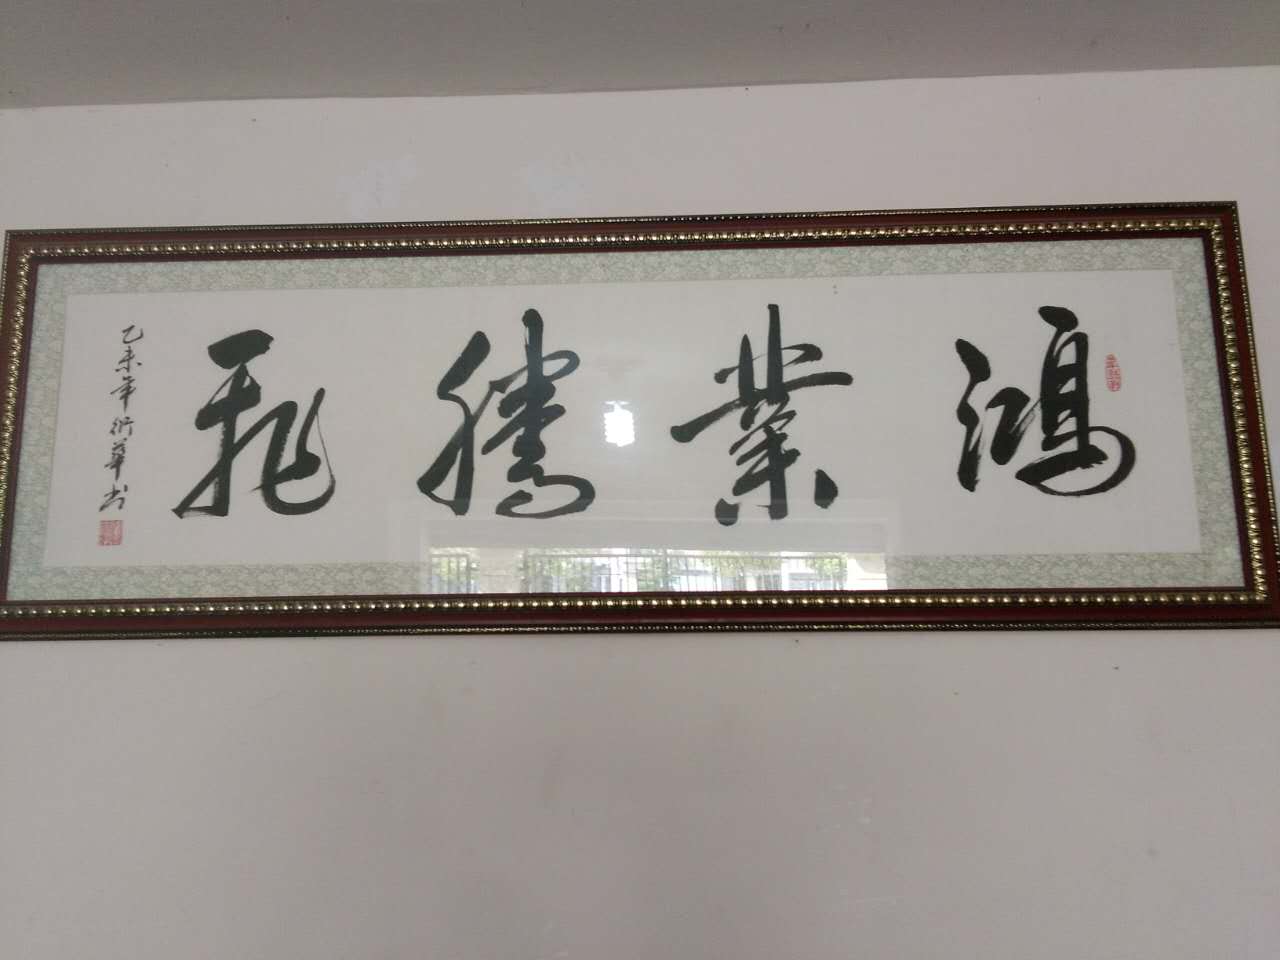 鴻業騰飛
乙未年衍華书